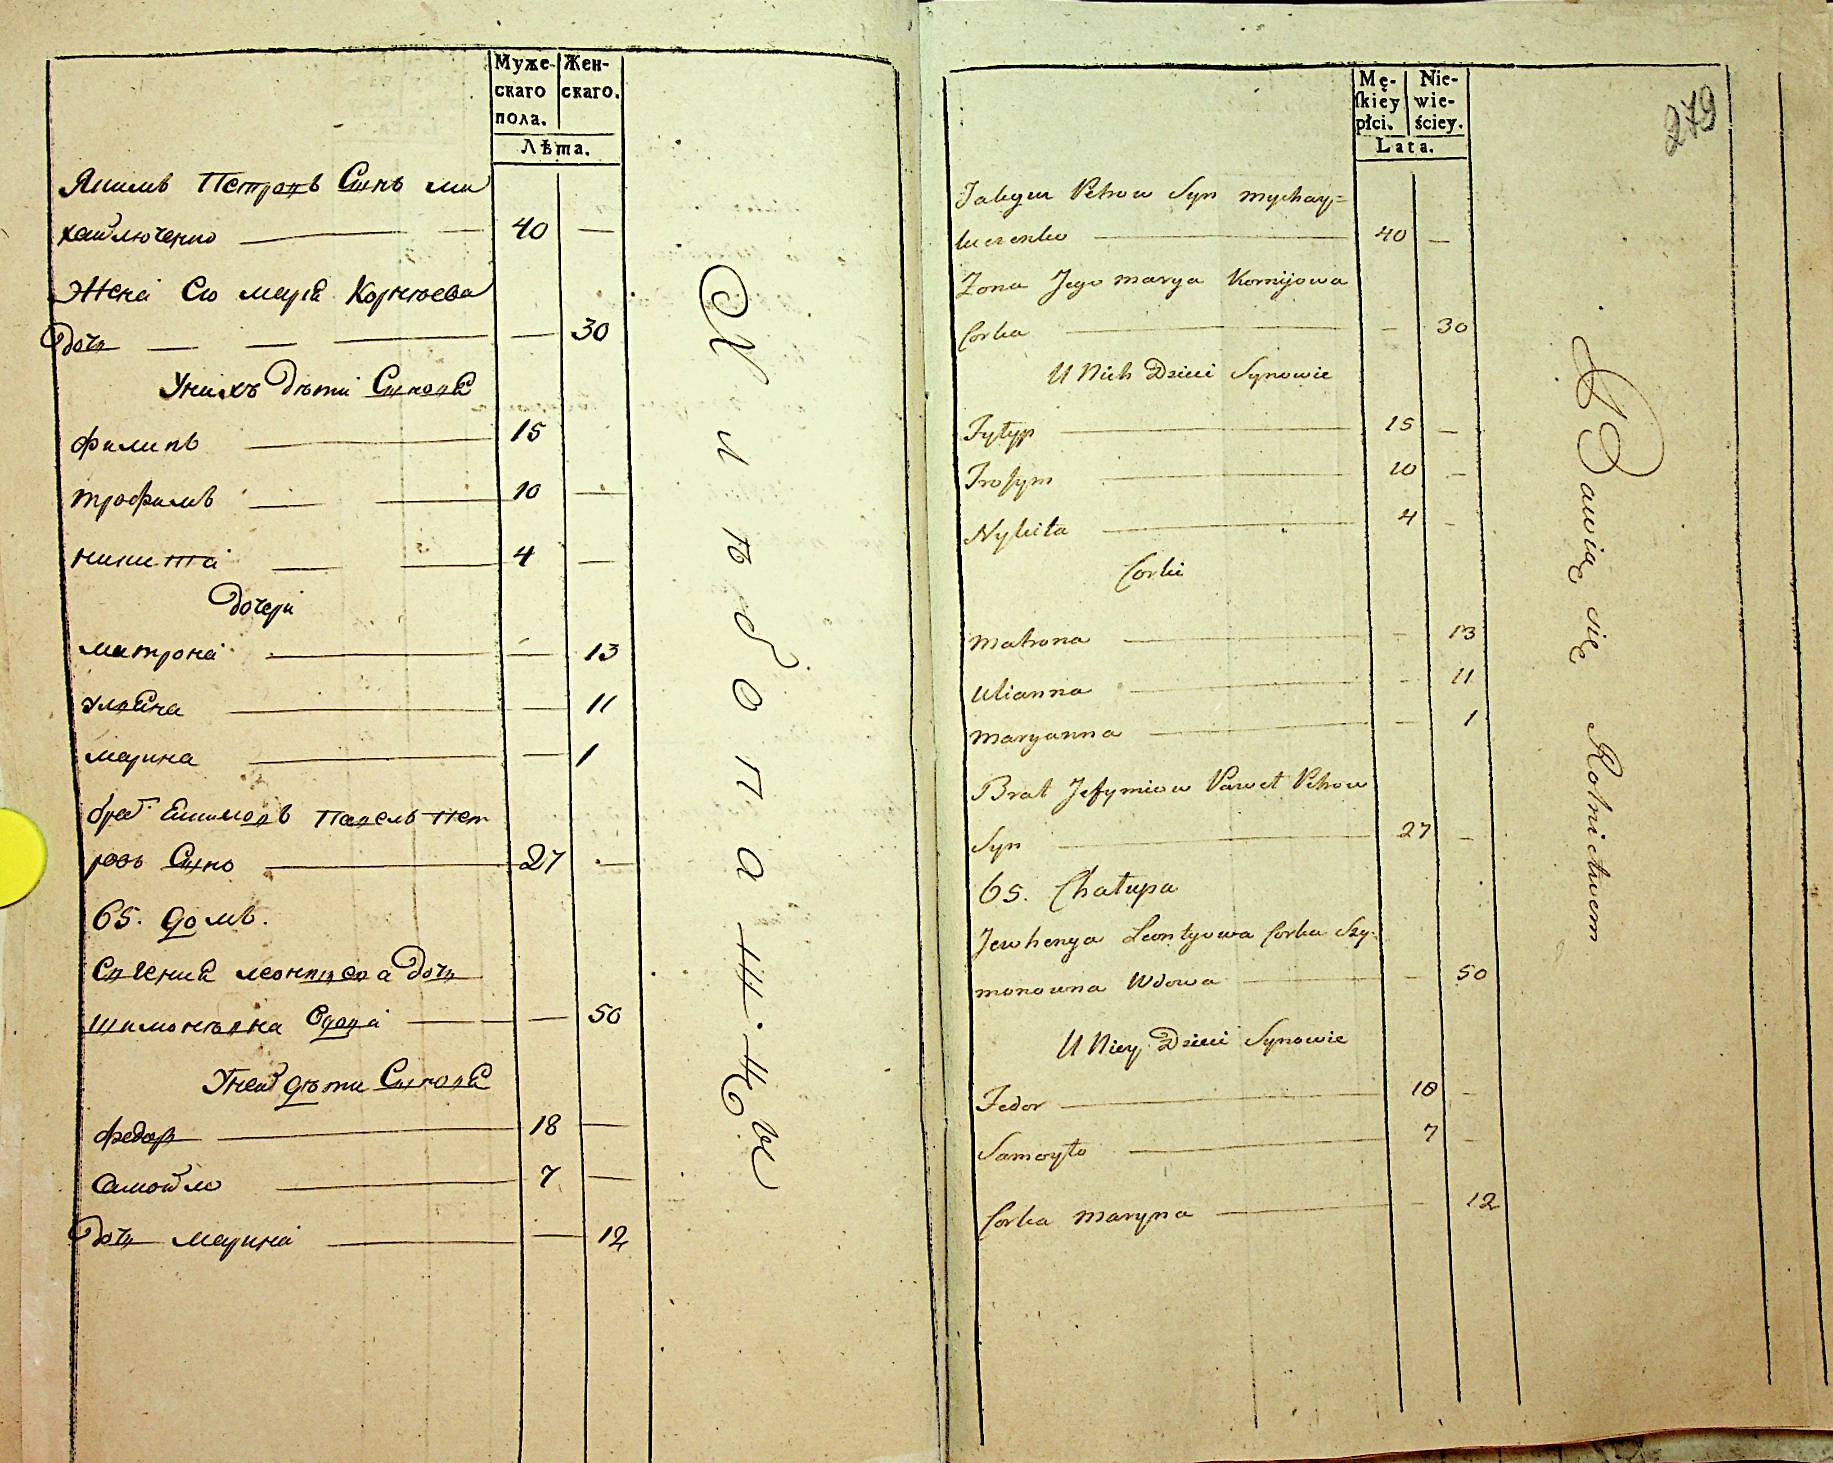 Муже- Жен-
скаго скаго.
пола.
Лѣта.
Якимъ Петровъ Сынъ ми
хайлюченко 40
Жена Его Марія Корніева
дочь 30
Унихъ дѣти Сыновя
Филипъ 15
трофимъ 10
никита 4
дочери
матрона 13
уляна 11
марина 1
братъ Павелъ Пет
ровъ Сынъ 27
65. домъ.
леонтіева дочь
Шимоновна вдова 50
Уней дѣти Сыновя
Федоръ 18
Самойло 7
дочь марина 12
Хлѣбопаж.
Mę- Nie-
skiéy wie-
płci. ściey.
Lata.
279
Jakym Petrow Syn Mychay=
luczenko 40
Żona Jego Marya Kornijowa
Corka 30
U Nich Dzieci Synowie
Fyłyp 15
Trofym 10
Nykita 4
Corki
Matrona 13
Ulianna 11
Maryanna 1
Brat Jefymiow Paweł Petrow
Syn 27
65. Chałupa
Jewhenya Leontyowa Corka Szy-
monowna Wdowa 50
U Niey Dzieci Synowie
Fedor 18
Samoyło 7
Corka Maryna 12
Bawią się Rolnictwem